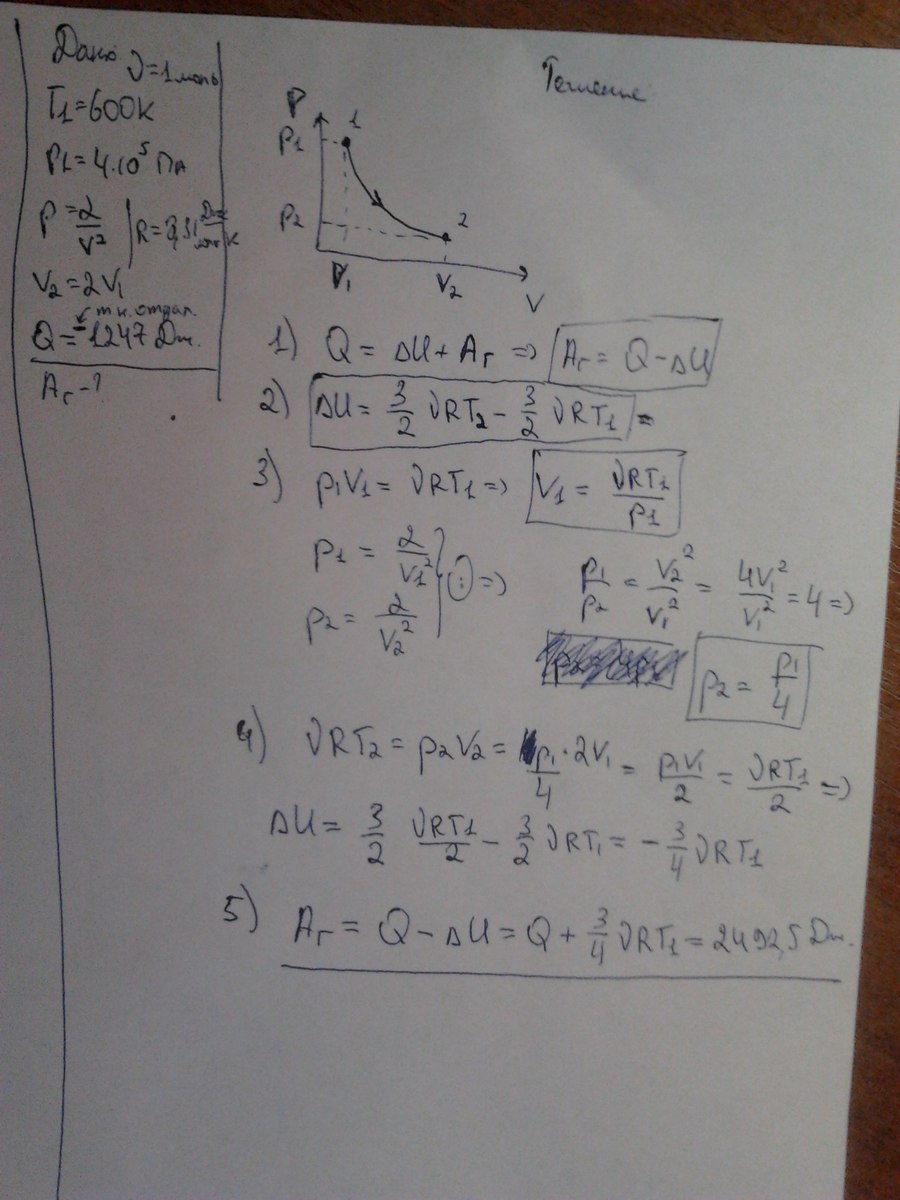 Дано ν=1моль
T1=600К
P1=4·10⁵ Па
P=2/V² | R=8,31 Дж/моль К
V2=2V1
т.к. отдал.
Q=-1247 Дж.
Aг-?
Решение
P
P1
1
P2
2
V1
V2
V
1) Q = ΔU + Aг => Aг = Q - ΔU
2) ΔU = 3/2 νRT2 - 3/2 νRT1 =
3) p1V1 = νRT1 => V1 = νRT1/p1
p1 = 2/V1²
p2 = 2/V2²
} (:) => p1/p2 = V2²/V1² = 4V1²/V1² = 4 =>
p2 = p1/4
4) νRT2 = p2V2 = p1/4 · 2V1 = p1V1/2 = νRT1/2 =>
ΔU = 3/2 νRT1/2 - 3/2 νRT1 = -3/4 νRT1
5) Aг = Q - ΔU = Q + 3/4 νRT1 = 2492,5 Дж.